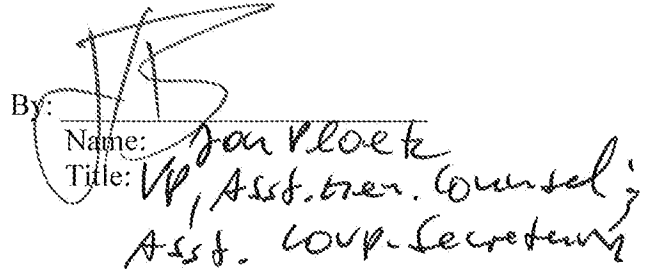 By:
Name: Jan Ploetz
Title: VP, Asst. Gen. Counsel;
Asst. Corp. Secretary